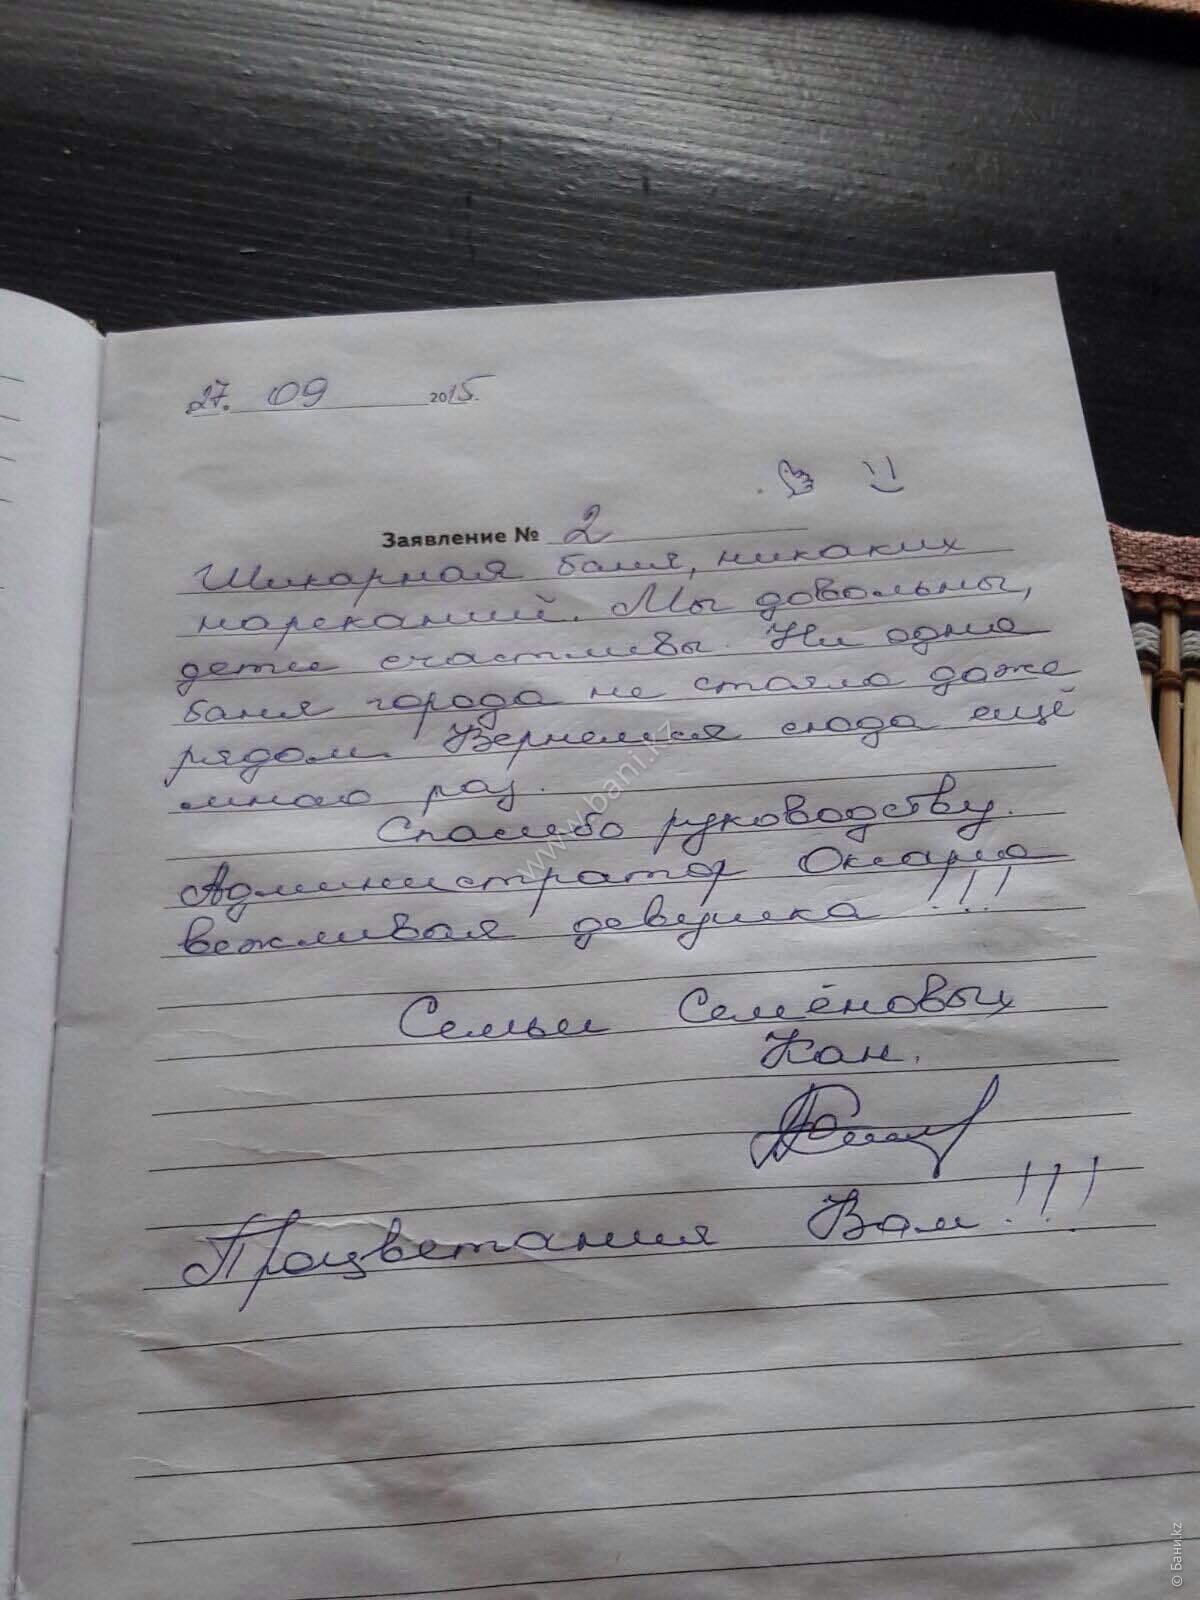 27. 09 2015.
Заявление № 2
Шикарная баня, никаких
нареканий. Мы довольны,
дети счастливы. Ни одна
баня города не стояла даже
рядом. Вернемся сюда ещё
много раз.
Спасибо руководству.
Администратор Оксана
вежливая девушка!!!
Семьи Семёновых
Кан.
Процветания Вам!!!
www.bani.kz
© Бани.kz